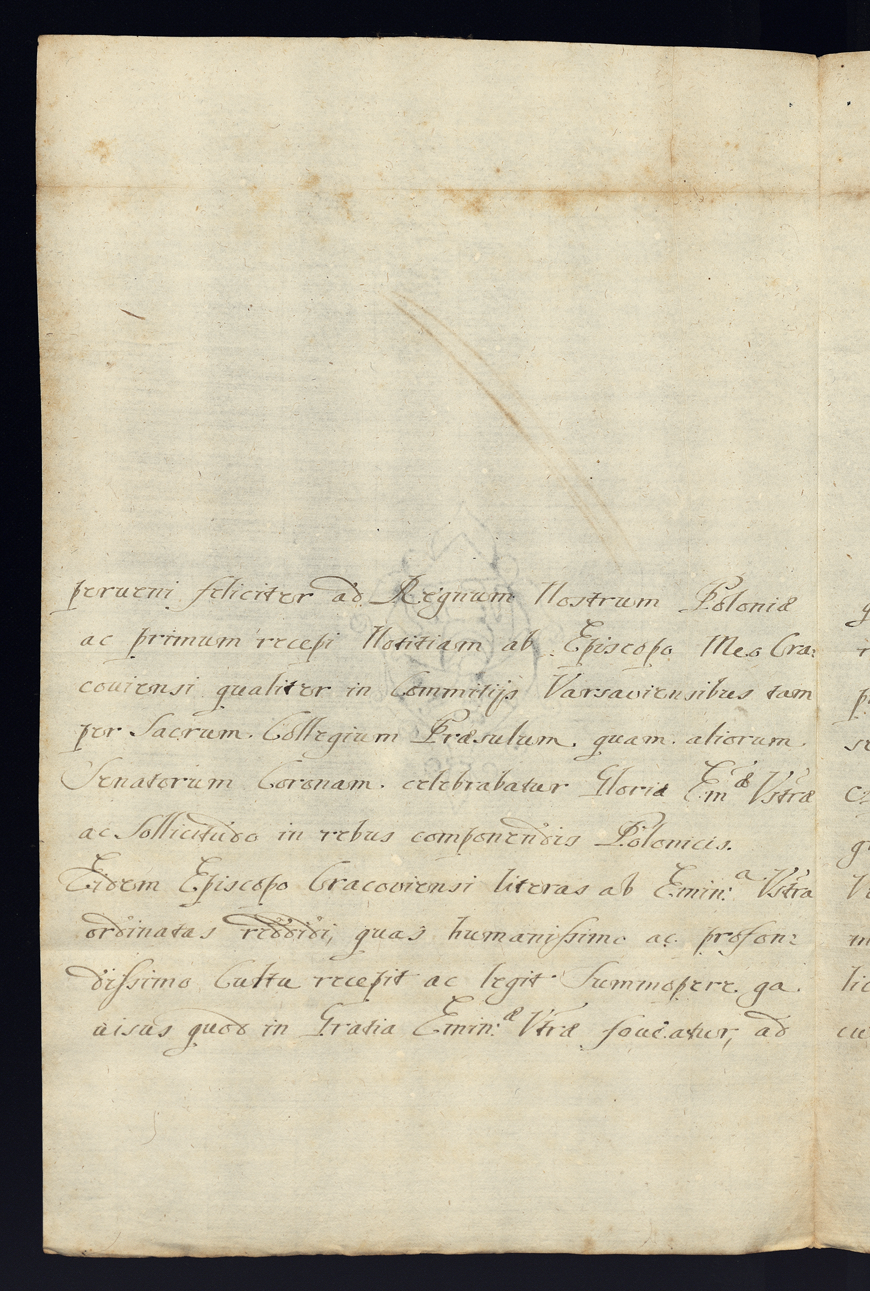 perueni feliciter ad Regnum Nostrum Poloniæ
ac primum recepi Notitiam ab Episcopo Meo Cra:
couiensi qualiter in Commitijs Varsauiensibus tam
per Sacrum Collegium Præsulum. quam aliorum.
Senatorum Coronam. celebrabatur Gloria Emæ Vstræ
ac Sollicitudo in rebus componendis Polonicis.
Eidem Episcopo Cracouiensi literas ab Emin:a Vstra
ordinatas reddidi, quas humanissime ac profon:
dissimo Cultu recepit ac legit Summopere ga
uisus quod in Gratia Emin:æ Vtræ foueatur, ad